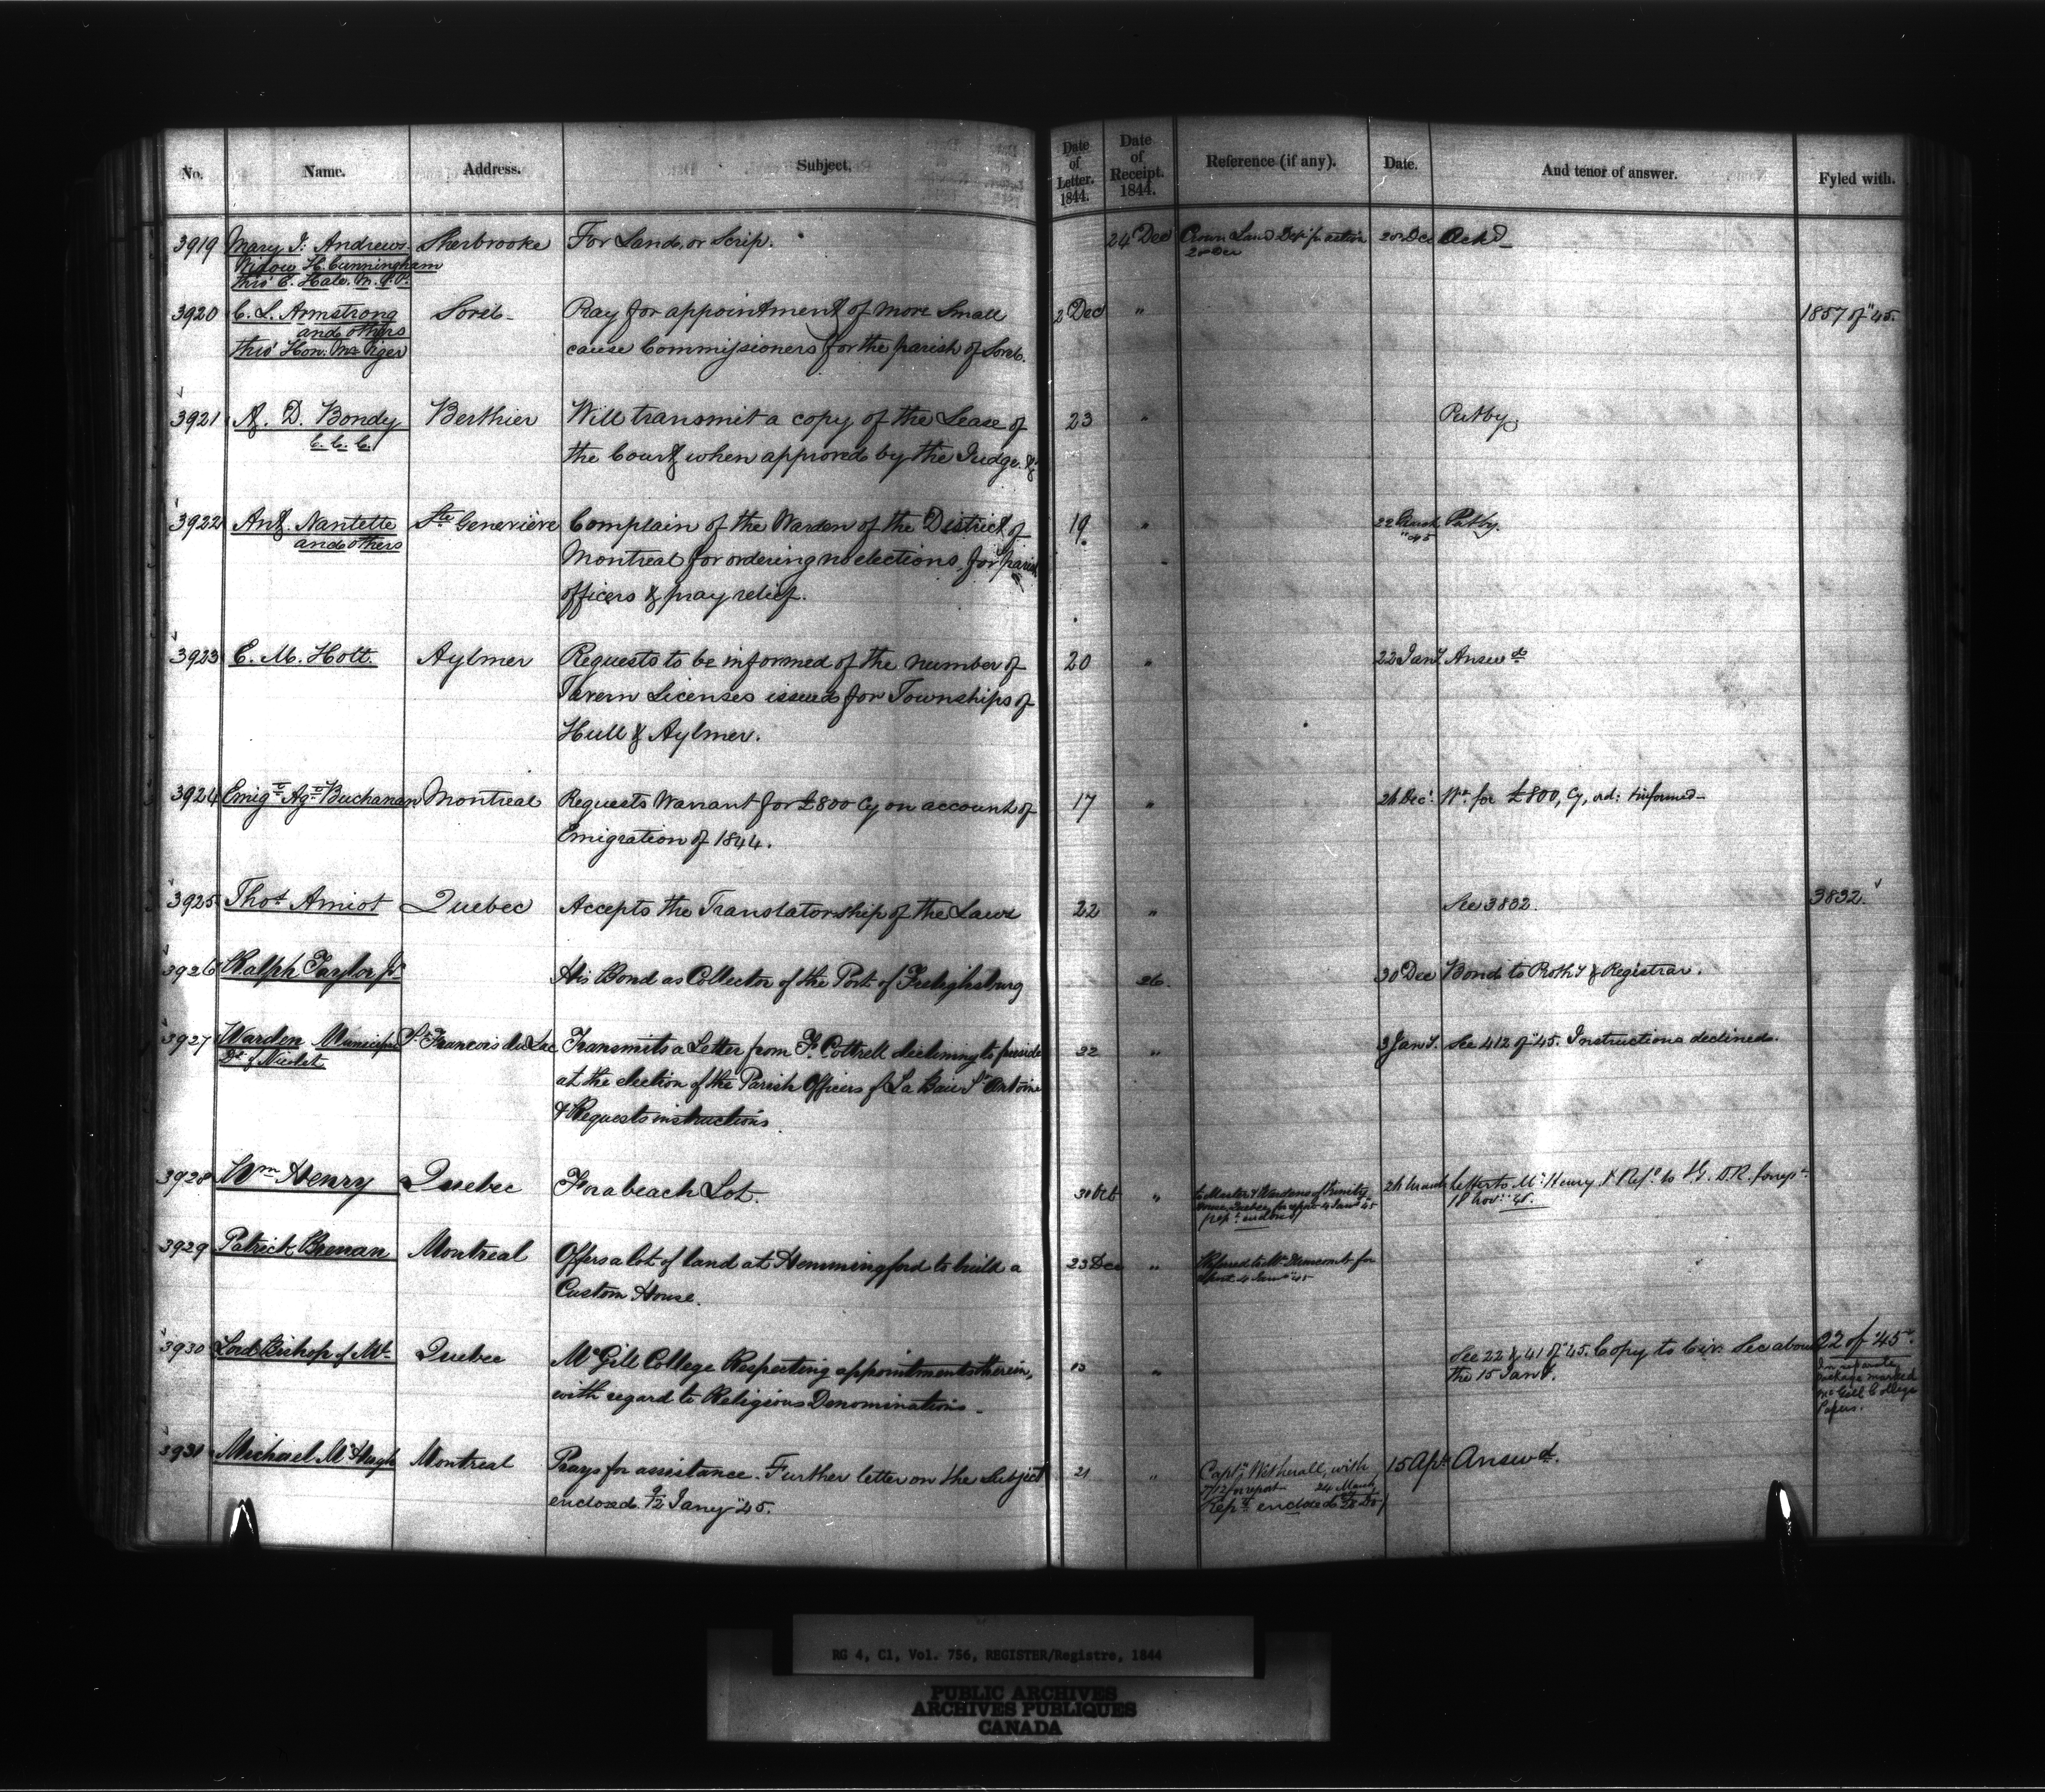 No. Name. Address. Subject. Date of Letter. 1844. Date of Receipt. 1844. Reference (if any). Date. And tenor of answer. Fyled with.
3919 Mary J: Andrews Sherbrooke For Land, or Scrip. 24 Dec Crown Land Dept for action 20 Dec Ackd
Widow H. Cunningham
thro' E. Hale. M.P.P.
3920 C. L. Armstrong Sorel Pray for appointment of more Small 2 Dec " 1857 of "45.
and others
thro' Hon: Mr Viger cause Commissioners for the parish of Sorel.
3921 A. D. Bondy Berthier Will transmit a copy of the Lease of 23 " Put by
C. C. C. the Court, when approved by the Judge &c
3922 Ant. Nantette Ste Genevieve Complain of the Warden of the District of 19 " 22 "45 Put by.
and others
Montreal for ordering no elections for parish
officers & pray relief.
3923 C. M. Holt. Aylmer Requests to be informed of the number of 20 " 22 Jany. Answd
Tavern Licenses issued for Townships of
Hull & Aylmer.
3924 Emigt Agt Buchanan Montreal Requests Warrant for £800 Cy on account of 17 " 24 Decr Wt for £800, Cy, ord: & informed
Emigration of 1844.
3925 Thos Amiot Quebec Accepts the Translatorship of the Laws 22 " See 3832. 3832.
3926 Ralph Taylor Jr His Bond as Collector of the Port of Freleighsburg 26. 30 Dec Bond to Prothy & Registrar.
3927 Warden Municipal St Francois du Lac Transmits a Letter from F. Cottrell declining to preside 22 " 3 Jany. See 412 of "45. Instructions declined.
Dt of Nicolet
at the election of the Parish Officers of La Baie St Antoine
& Requests instructions
3928 Wm Henry Quebec For a beach Lot. 31 Oct " To Master & Wardens of Trinity House, Quebec, for report 4 Jany 45 24 March Letter to Mr Henry & Refd to I.G. D.R. for rept
18 Novr 45.
3929 Patrick Brenan Montreal Offers a lot of land at Hemmingford to build a 23 Dec " Referred to Mr Dunscomb for
report 4 Jany "45
Custom House.
3930 Lord Bishop of Mt. Quebec McGill College Respecting appointments therein, 13 " See 22 & 41 of "45. Copy to Civ: Sec about 22 of "45.
the 15 Jany.
with regard to Religious Denominations.
In separate
package marked
McGill College
Papers.
3931 Michael McHugh Montreal Prays for assistance. Further letter on the Subject 21 " Captn Wetherall, with 15 Apl Answd.
for report 24 March
enclosed 9/12 Jany "45. Rept enclosed
RG 4, C1, Vol. 756, REGISTER/Registre, 1844
PUBLIC ARCHIVES
ARCHIVES PUBLIQUES
CANADA